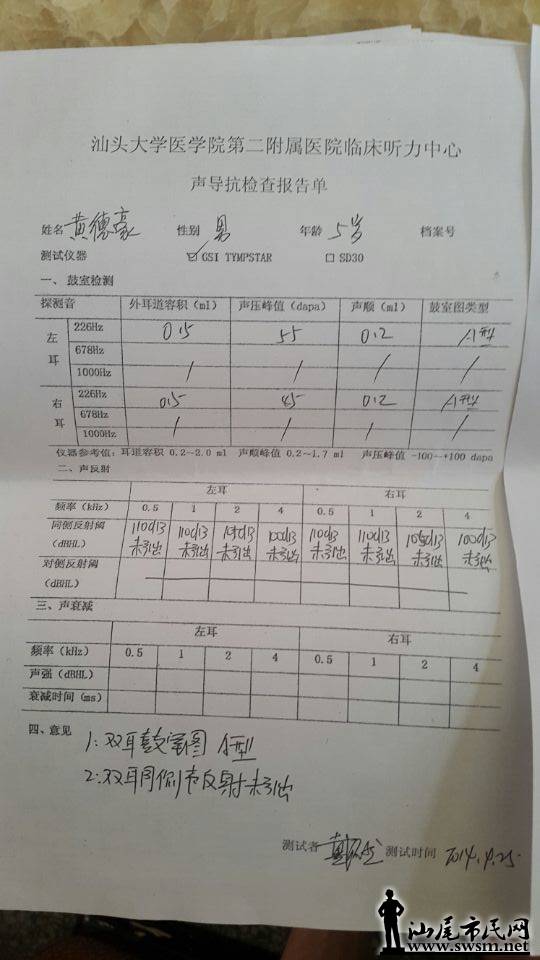 汕头大学医学院第二附属医院临床听力中心
声导抗检查报告单
姓名 黄德豪 性别 男 年龄 5岁 档案号
测试仪器 ☑GSI TYMPSTAR □SD30
一、鼓室检测
探测音 外耳道容积（ml） 声压峰值（dapa） 声顺（ml） 鼓室图类型
左耳 226Hz 0.5 55 0.2 A型
678Hz / / / /
1000Hz
右耳 226Hz 0.5 45 0.2 A型
678Hz / / / /
1000Hz
仪器参考值：耳道容积 0.2~2.0 ml 声顺峰值 0.2~1.7 ml 声压峰值 -100~+100 dapa
二、声反射
左耳 右耳
频率（kHz） 0.5 1 2 4 0.5 1 2 4
同侧反射阈 110dB 110dB 105dB 100dB 110dB 110dB 105dB 100dB
（dBHL） 未引出 未引出 未引出 未引出 未引出 未引出 未引出 未引出
对侧反射阈
（dBHL）
三、声衰减
左耳 右耳
频率（kHz） 0.5 1 2 4 0.5 1 2 4
声强（dBHL）
衰减时间（ms）
四、意见
1：双耳鼓室图 A型
2：双耳同侧声反射未引出
测试者 测试时间 2014.4.25.
汕尾市民网
www.swsm.net